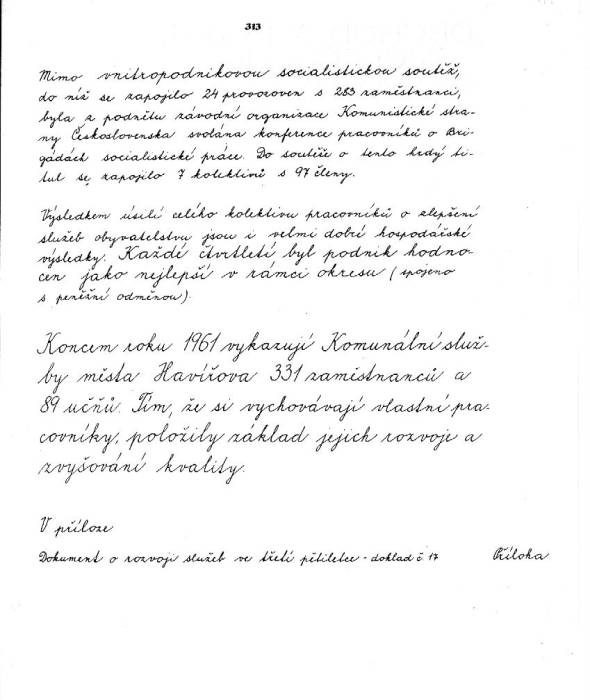 313
Mimo vnitropodnikovou socialistickou soutěž,
do níž se zapojilo 24 provozoven s 283 zaměstnanci,
byla z podnětu závodní organizace Komunistické stra-
ny Československa svolána konference pracovníků o Bri-
gádách socialistické práce. Do soutěže o tento hrdý ti-
tul se zapojilo 7 kolektivů s 97 členy.
Výsledkem úsilí celého kolektivu pracovníků o zlepšení
služeb obyvatelstvu jsou i velmi dobré hospodářské
výsledky. Každé čtvrtletí byl podnik hodno-
cen jako nejlepší v rámci okresu (spojeno
s peněžní odměnou).
Koncem roku 1961 vykazují Komunální služ-
by města Havířova 331 zaměstnanců a
89 učňů. Tím, že si vychovávají vlastní pra-
covníky, položily základ jejich rozvoje a
zvyšování kvality.
V příloze
Dokument o rozvoji služeb ve třetí pětiletce - doklad č 17 Příloha